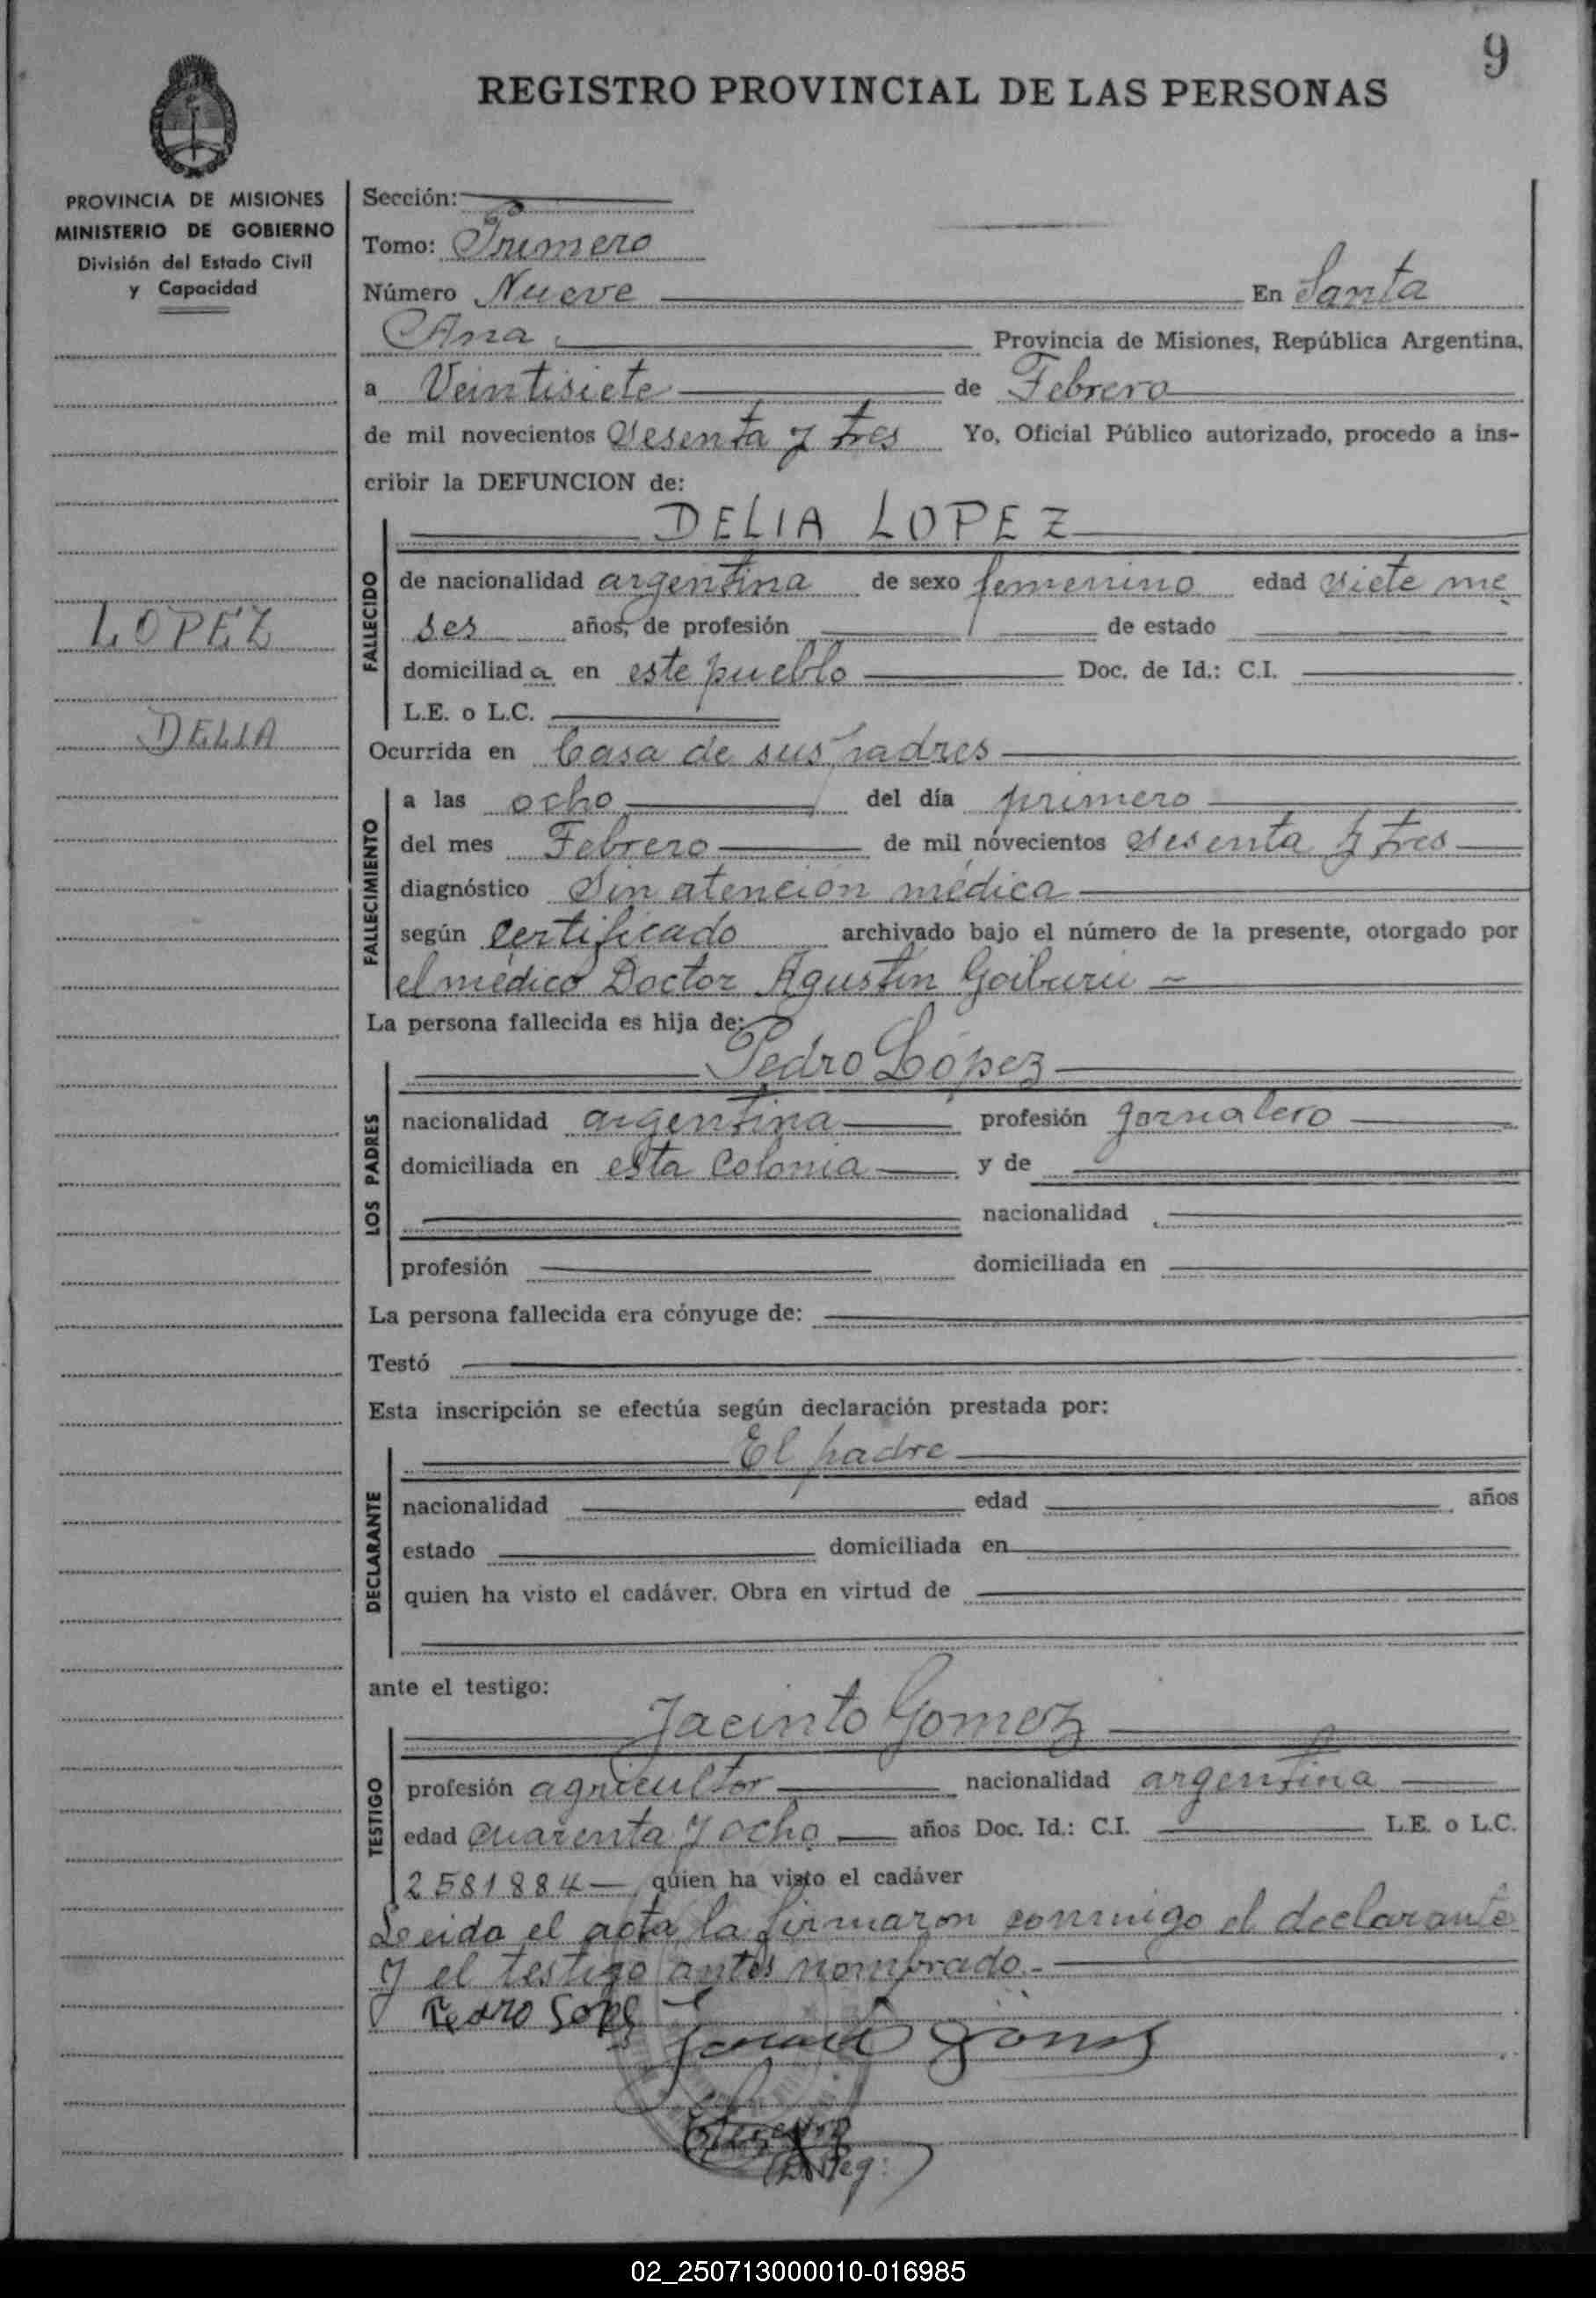 9
REGISTRO PROVINCIAL DE LAS PERSONAS
PROVINCIA DE MISIONES
MINISTERIO DE GOBIERNO
División del Estado Civil
y Capacidad
LOPEZ
DELIA
Sección:
Tomo: Primero
Número Nueve En Santa
Ana Provincia de Misiones, República Argentina,
a Veintisiete de Febrero
de mil novecientos Sesenta y tres Yo, Oficial Público autorizado, procedo a ins-
cribir la DEFUNCION de:
DELIA LOPEZ
FALLECIDO
de nacionalidad argentina de sexo femenino edad siete me
ses años, de profesión de estado
domiciliada en este pueblo Doc. de Id.: C.I.
L.E. o L.C.
Ocurrida en Casa de sus padres
FALLECIMIENTO
a las ocho del día primero
del mes Febrero de mil novecientos sesenta y tres
diagnóstico Sin atencion médica
según Certificado archivado bajo el número de la presente, otorgado por
el médico Doctor Agustín Goiburú
La persona fallecida es hija de:
Pedro López
LOS PADRES
nacionalidad argentina profesión jornalero
domiciliada en esta Colonia y de
nacionalidad
profesión domiciliada en
La persona fallecida era cónyuge de:
Testó
Esta inscripción se efectúa según declaración prestada por:
El padre
DECLARANTE
nacionalidad edad años
estado domiciliada en
quien ha visto el cadáver. Obra en virtud de
ante el testigo:
Jacinto Gomez
TESTIGO
profesión agricultor nacionalidad argentina
edad cuarenta y ocho años Doc. Id.: C.I. L.E. o L.C.
2581884 quien ha visto el cadáver
Leida el acta la firmaron conmigo el declarante
y el testigo antes nombrado.-
Pedro Lopez
02_250713000010-016985